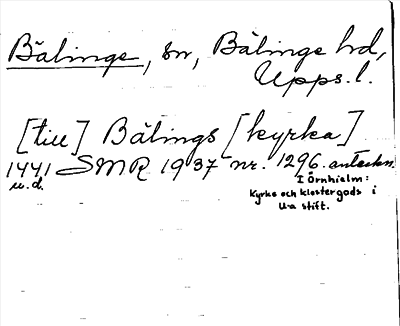 Bälinge, sn, Bälinge hd,
Upps. l.
[till] Bälings [kyrka]
1441 SMR 1937 nr. 1296. anteckn.
u.d.
I Örnhielm:
Kyrko och klostergods i
U-a stift.